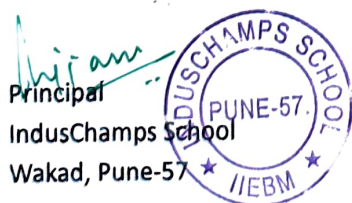 Principal
IndusChamps School
Wakad, Pune-57
INDUSCHAMPS SCHOOL
PUNE-57.
★ IIEBM ★